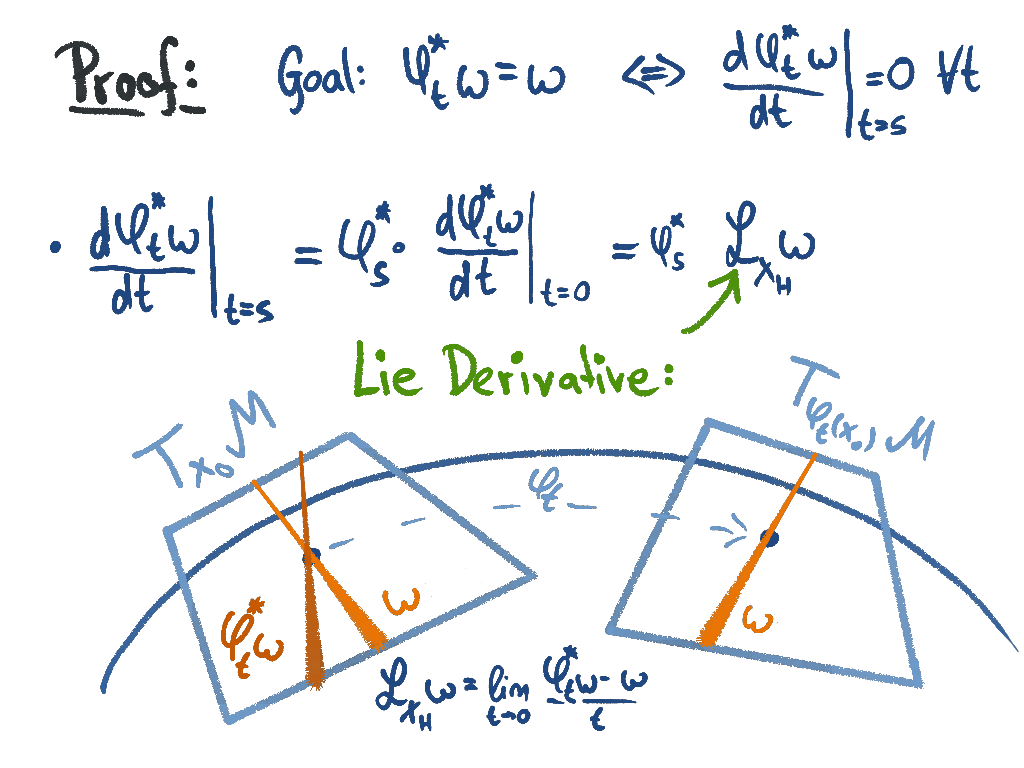 Proof: Goal: φₜ*ω = ω ⇔ dφₜ*ω/dt |ₜ₌ₛ = 0 ∀t
· dφₜ*ω/dt |ₜ₌ₛ = φₛ* · dφₜ*ω/dt |ₜ₌₀ = φₛ* ℒ_{X_H} ω
Lie Derivative:
T_{x₀}M
T_{φₜ(x₀)}M
φₜ
φₜ*ω
ω
ω
ℒ_{X_H} ω = lim_{t→0} (φₜ*ω - ω)/t